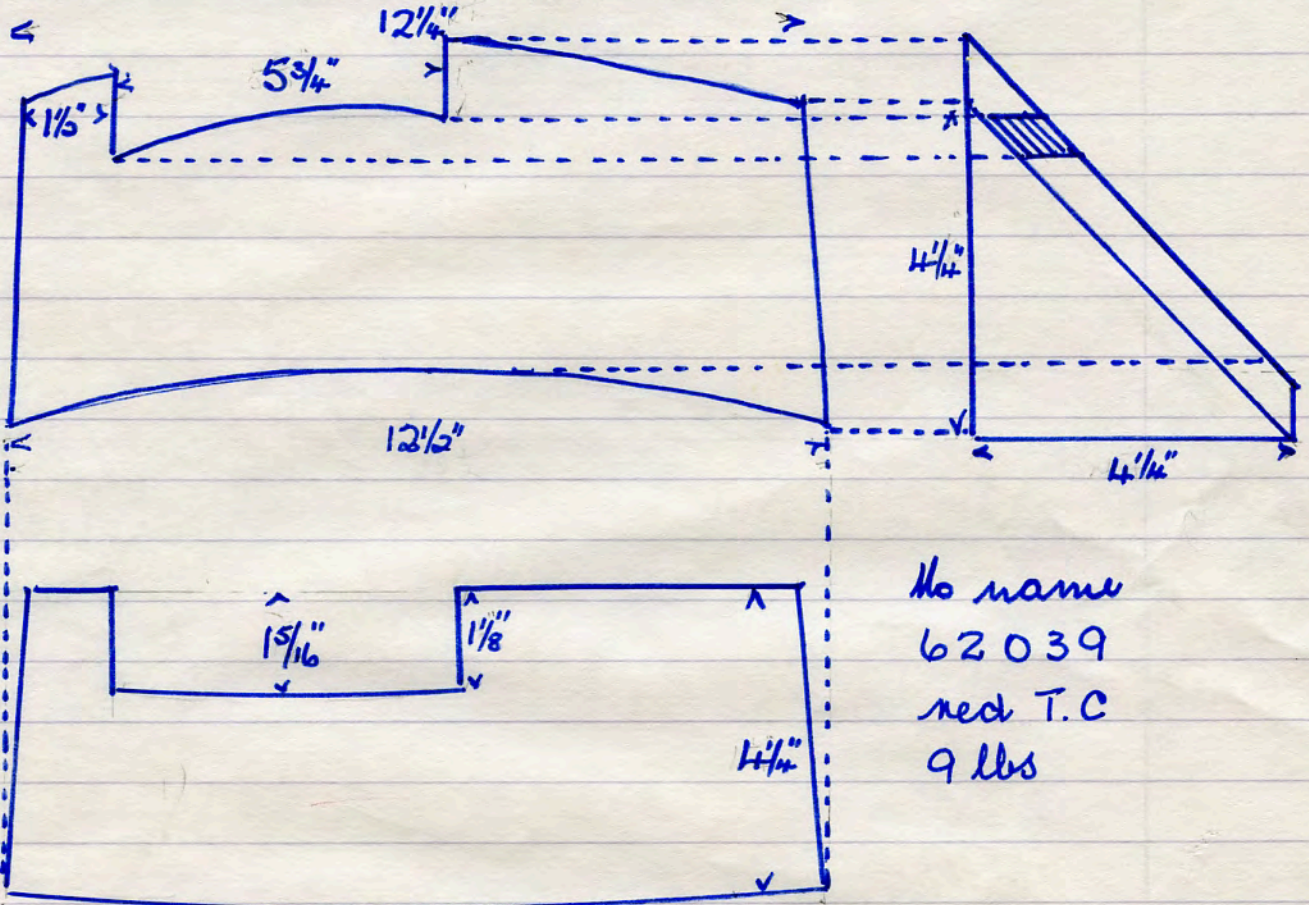 12 1/4"
5 3/4"
1 1/2"
4 1/4"
12 1/2"
4 1/4"
1 5/16"
1 1/8"
4 1/4"
No name
62039
red T.C
9 lbs